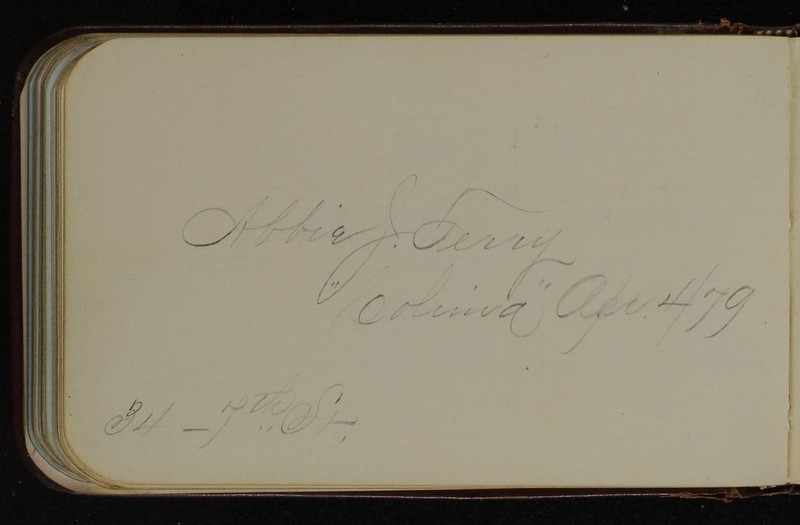 Abbie J. Terry
"Colima" Apr. 4/79
34 – 7th St.